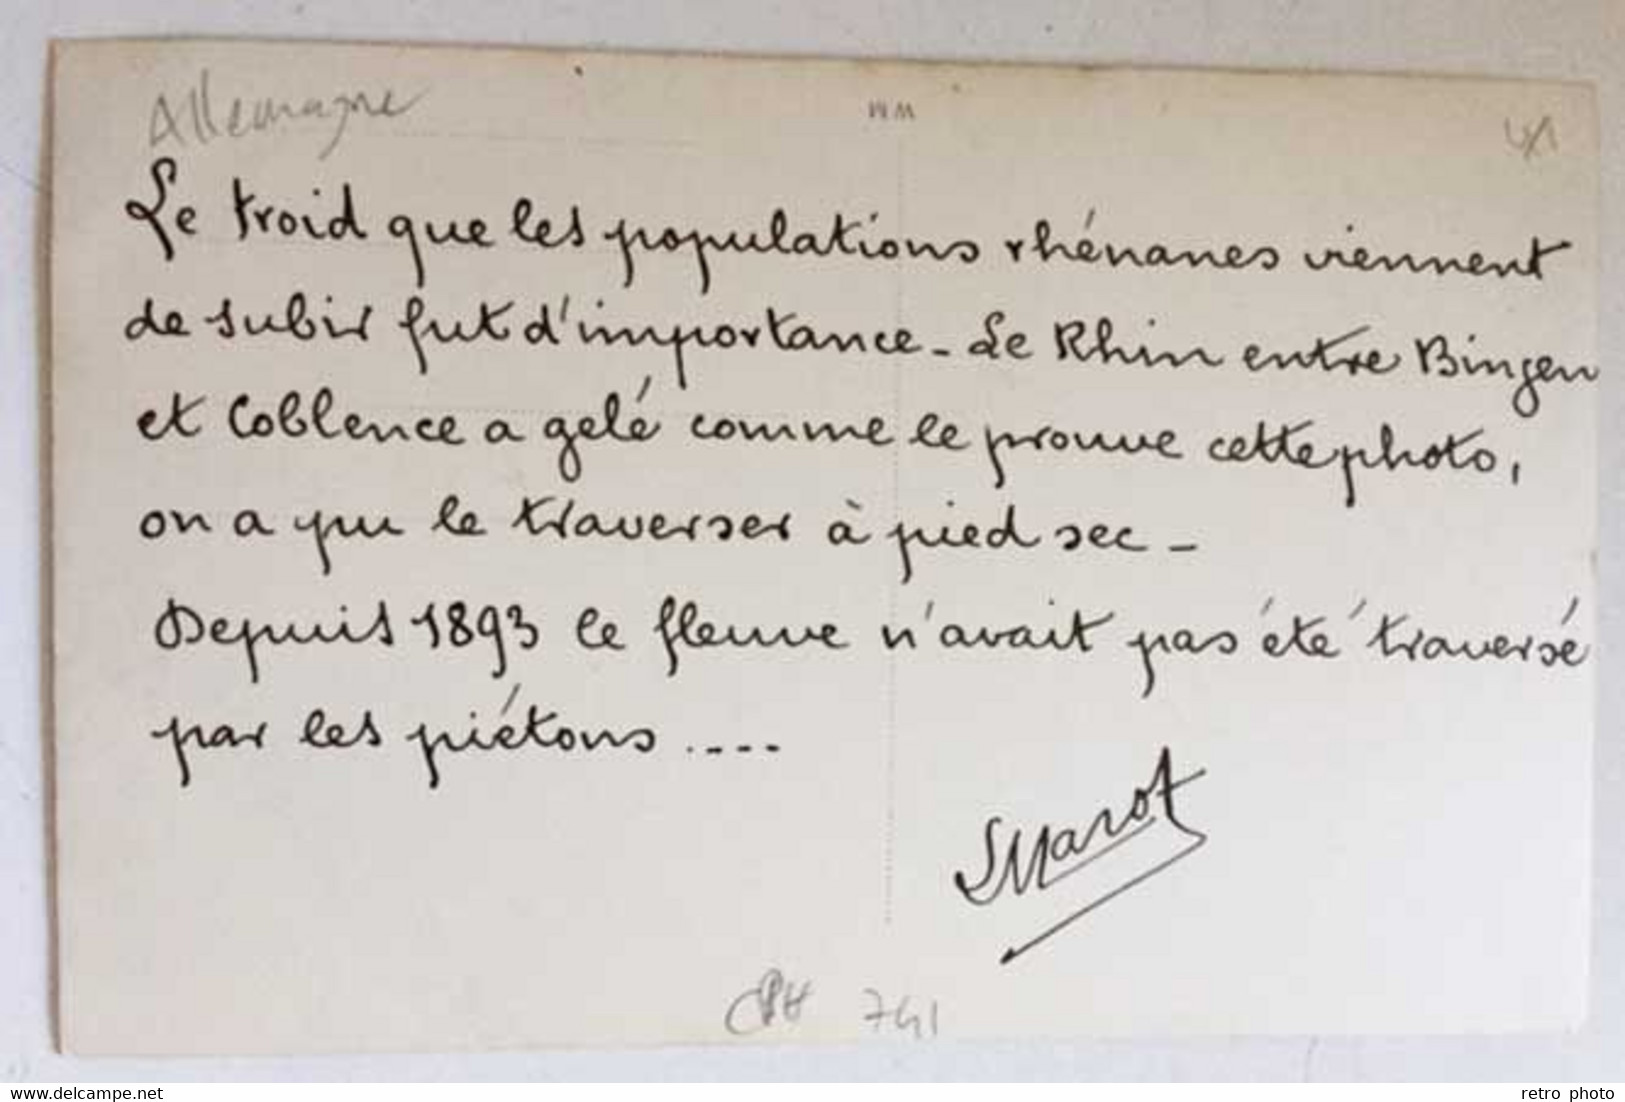 Allemagne
WM
Le froid que les populations rhénanes viennent
de subir fut d'importance - Le Rhin entre Bingen
et Coblence a gelé comme le prouve cette photo,
on a pu le traverser à pied sec -
Depuis 1893 le fleuve n'avait pas été traversé
par les piétons ....
Marot
741
delcampe.net
retro photo